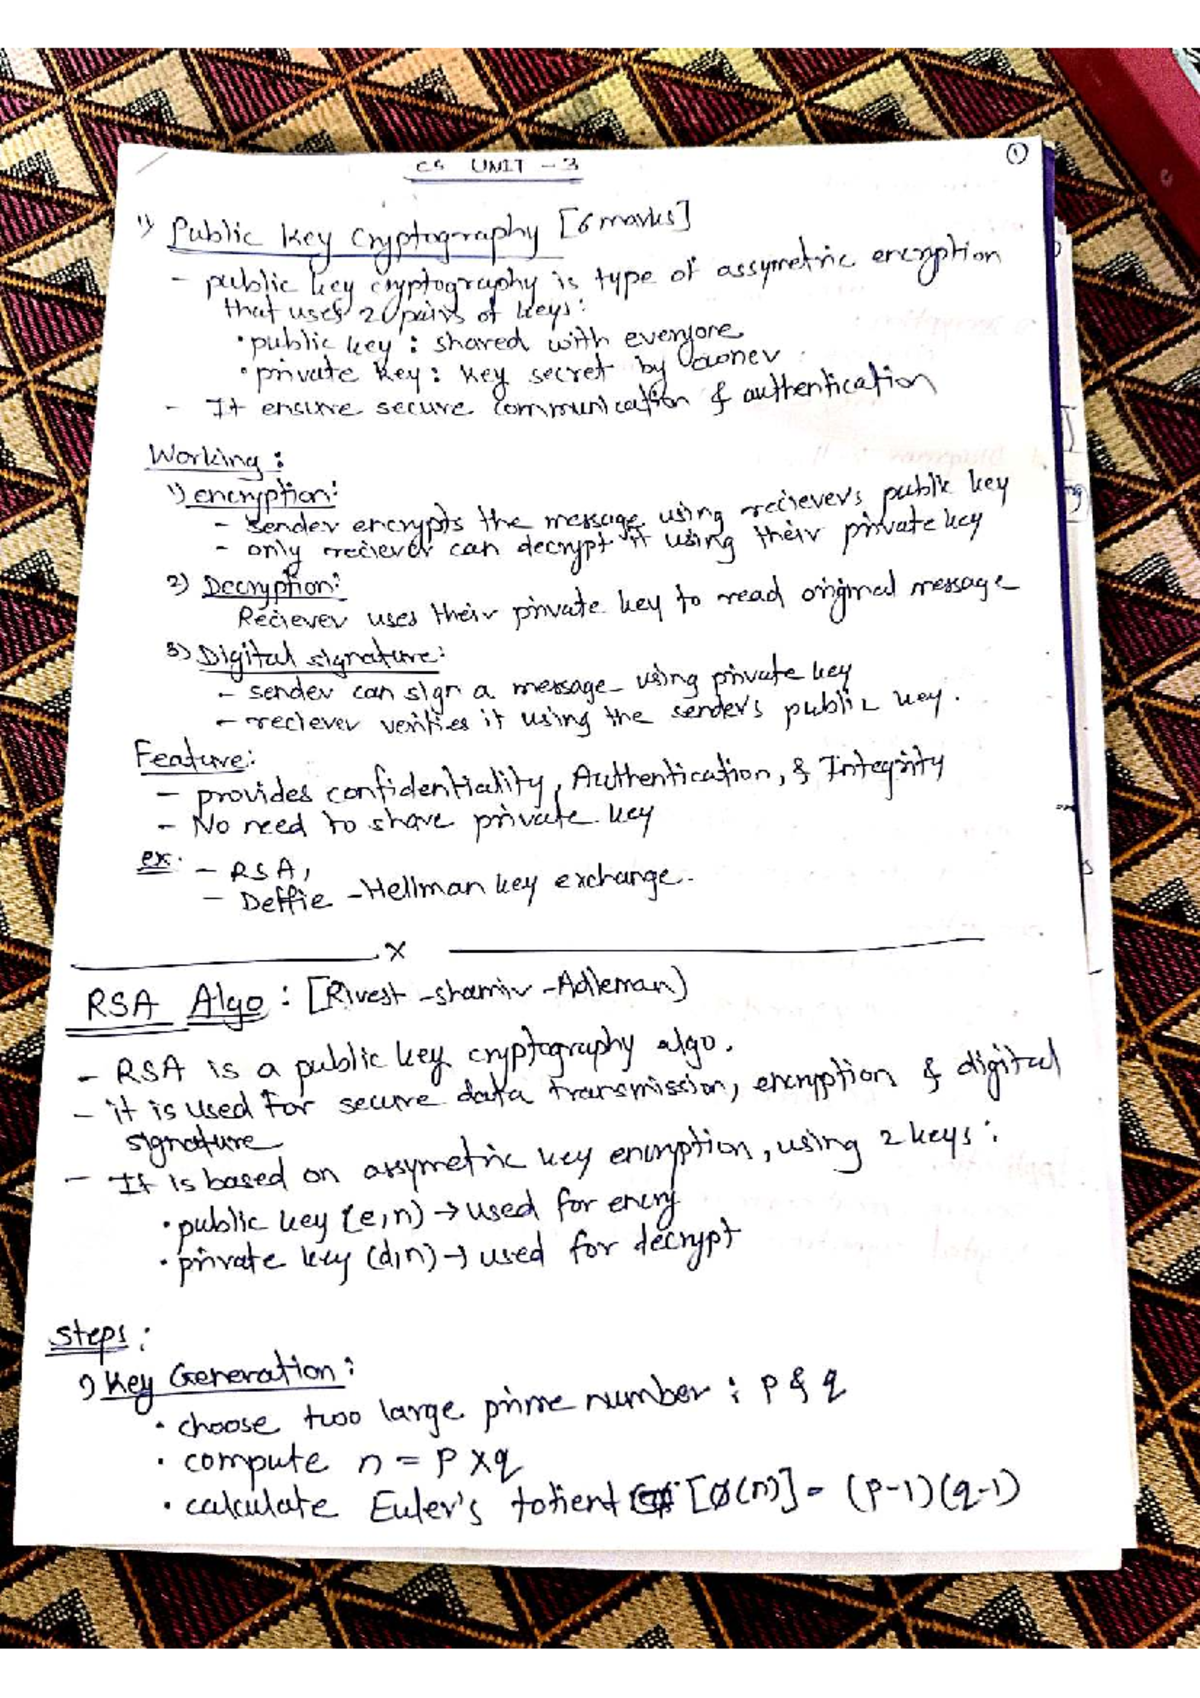 CS UNIT - 3
1
1) Public Key Cryptography [6 marks]
- public key cryptography is type of assymetric encryption
that uses 2 pairs of keys:
• public key : shared with everyone
• private key : key secret by owner
- It ensure secure communication & authentication
Working :
1) encryption:
- sender encrypts the message using reciever's public key
- only reciever can decrypt it using their private key
2) Decryption:
Reciever uses their private key to read original message
3) Digital signature:
- sender can sign a message using private key
- reciever verifies it using the sender's public key.
Feature:
- provides confidentiality, Authentication, & Integrity
- No need to share private key
ex. - RSA,
- Deffie - Hellman key exchange.
x
RSA Algo : [Rivest - shamir - Adleman)
- RSA is a public key cryptography algo.
- it is used for secure data transmission, encryption & digital
signature
- It is based on assymetric key encryption, using 2 keys:
• public key (e,n) → used for encry
• private key (d,n) → used for decrypt
steps :
1) Key Generation :
• choose two large prime number : p & q
• compute n = p x q
• calculate Euler's totient [Ø(n)] = (p-1)(q-1)